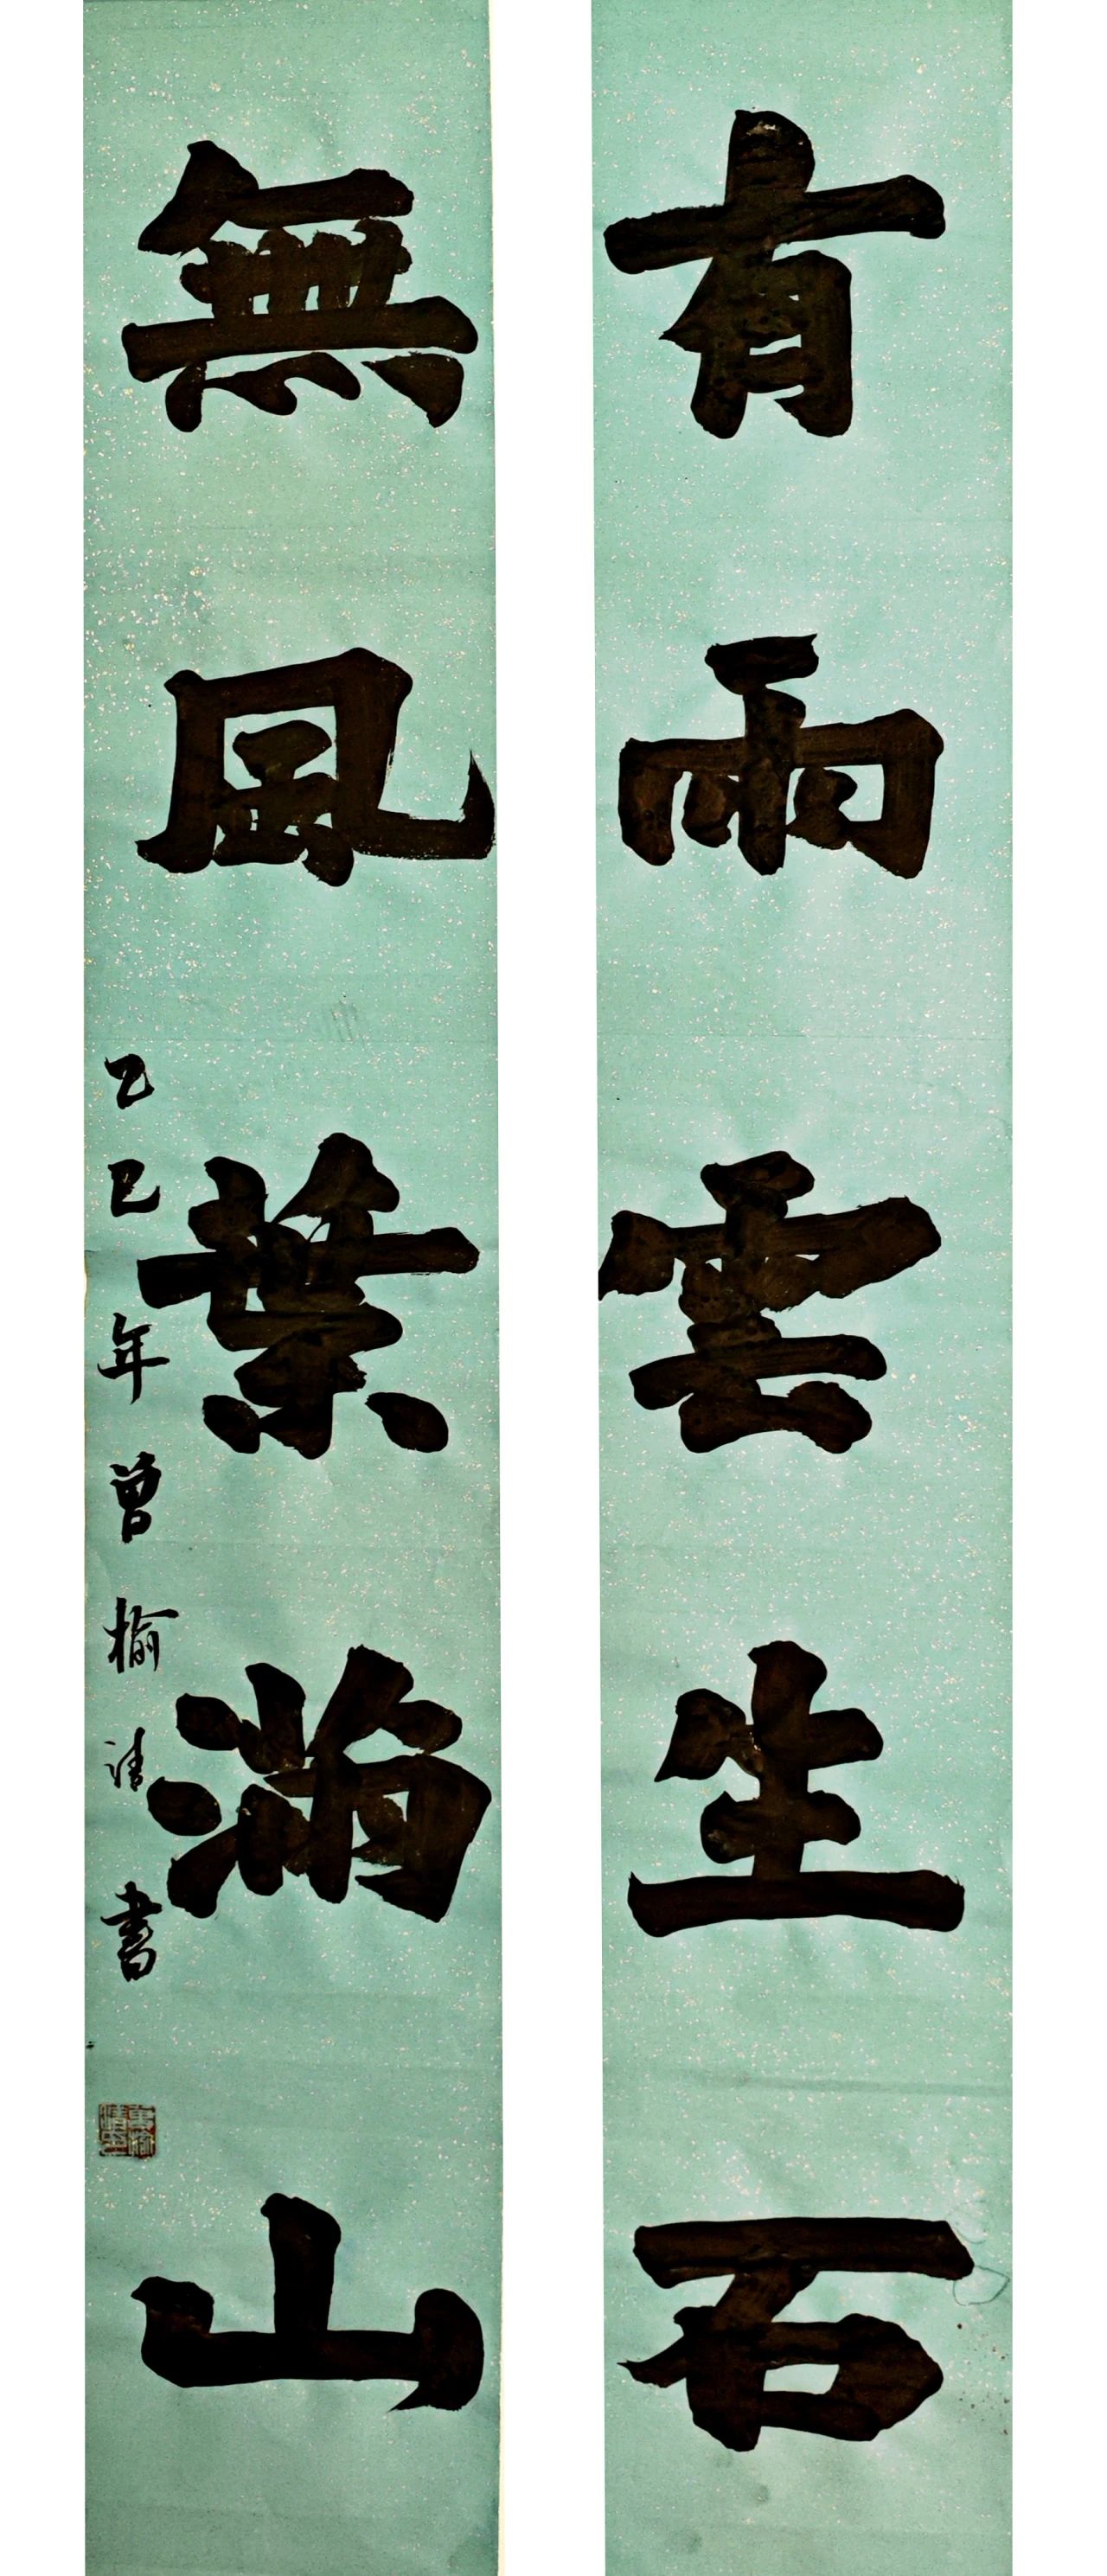 有雨雲生石
無風葉滿山
乙巳年曾榆清書